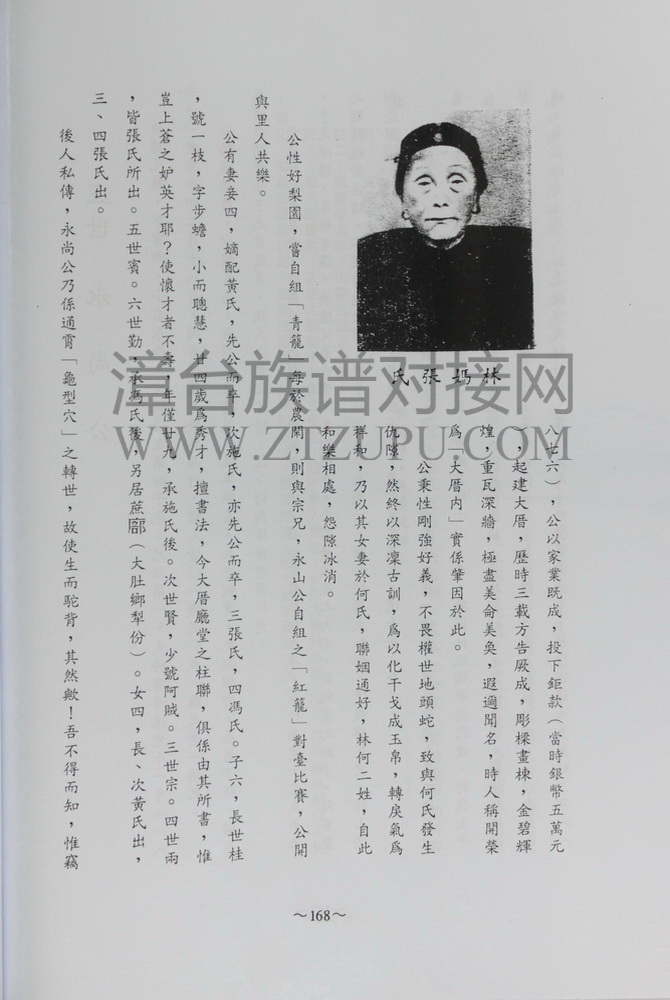 林媽張氏
八七六），公以家業既成，投下鉅款（當時銀幣五萬元
），起建大厝，歷時三載方告厥成，彫樑畫棟，金碧輝
煌，重瓦深牆，極盡美侖美奐，遐邇聞名，時人稱開榮
為「大厝內」實係肇因於此。
公秉性剛強好義，不畏權世地頭蛇，致與何氏發生
仇隙，然終以深凜古訓，為以化干戈成玉帛，轉戾氣為
祥和，乃以其女妻於何氏，聯姻通好，林何二姓，自此
和樂相處，怨隙冰消。
公性好梨園，嘗自組「青籠」每於農閑，則與宗兄，永山公自組之「紅籠」對臺比賽，公開
與里人共樂。
公有妻妾四，嫡配黃氏，先公而卒，次施氏，亦先公而卒，三張氏，四馮氏。子六，長世桂
，號一枝，字步蟾，小而聰慧，廿四歲為秀才，擅書法，今大厝廳堂之柱聯，俱係由其所書，惟
豈上蒼之妒英才耶？使懷才者不壽，年僅廿九，承施氏後。次世賢，少號阿賊。三世宗。四世兩
，皆張氏所出。五世賓。六世勤，承馮氏後，另居蔗廍（大肚鄉犁份）。女四，長、次黃氏出，
三、四張氏出。
後人私傳，永尚公乃係通霄「龜型穴」之轉世，故使生而駝背，其然歟！吾不得而知，惟竊
～168～
漳台族谱对接网
WWW.ZTZUPU.COM